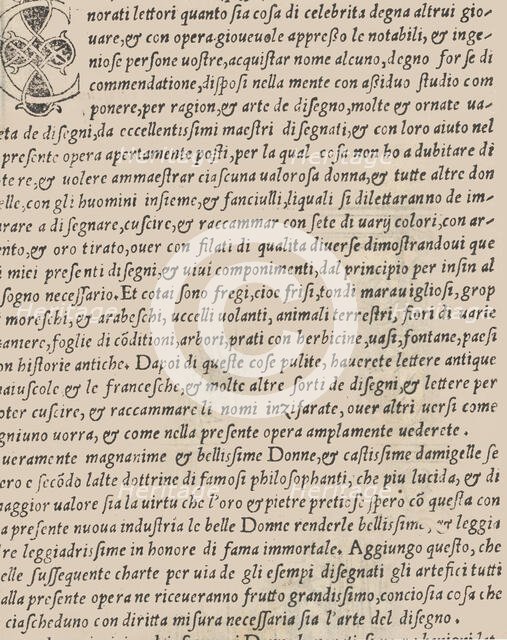 norati lettori quanto sia cosa di celebrita degna altrui gio-
uare, & con opera gioueuole appresso le notabili, & inge-
niose persone uostre, acquistar nome alcuno, degno forse di
commendatione, disposi nella mente con assiduo studio com
ponere, per ragion, & arte de disegno, molte & ornate ua-
eta de disegni, da eccellentissimi maestri disegnati, & con loro aiuto nel
presente opera apertamente posti, per la qual cosa non ho a dubitare di
otere, & uolere ammaestrar ciascuna ualorosa donna, & tutte altre don
elle, con gli huomini insieme, & fanciulli, liquali si dilettaranno de im-
arare a disegnare, cuscire, & raccammar con sete di uarij colori, con ar-
ento, & oro tirato, ouer con filati di qualita diuerse dimostrandoui que
i miei presenti disegni, & uiui componimenti, dal principio per insin al
sogno necessario. Et cotai sono fregi, cioe frisi, tondi marauigliosi, grop
moreschi, & arabeschi, uccelli uolanti, animali terrestri, fiori di uarie
aniere, foglie di cõditioni, arbori, prati con herbicine, uasi, fontane, paesi
on historie antiche. Dapoi di queste cose pulite, hauerete lettere antique
naiuscole & le francesche, & molte altre sorti de disegni, & lettere per
oter cuscire, & raccammare li nomi inzifarate, ouer altri uersi come
gniuno uorra, & come nella presente opera amplamente uederete.
ueramente magnanime & bellissime Donne, & castissime damigelle se
ero e secõdo lalte dottrine di famosi philosophanti, che piu lucida, & di
aggior ualore sia la uirtu che l'oro, & pietre pretiose spero cõ questa con
a presente nuoua industria le belle Donne renderle bellissime, & leggia
re leggiadrissime in honore di fama immortale. Aggiungo questo, che
elle sussequente charte per uia de gli esempi disegnati gli artefici tutti
alla presente opera ne riceueranno frutto grandissimo, conciosia cosa che
ciascheduno con diritta misura necessaria sia l'arte del disegno.
Heritage
Heritage
Heritage
Heritage
Heritage
Heritage
C